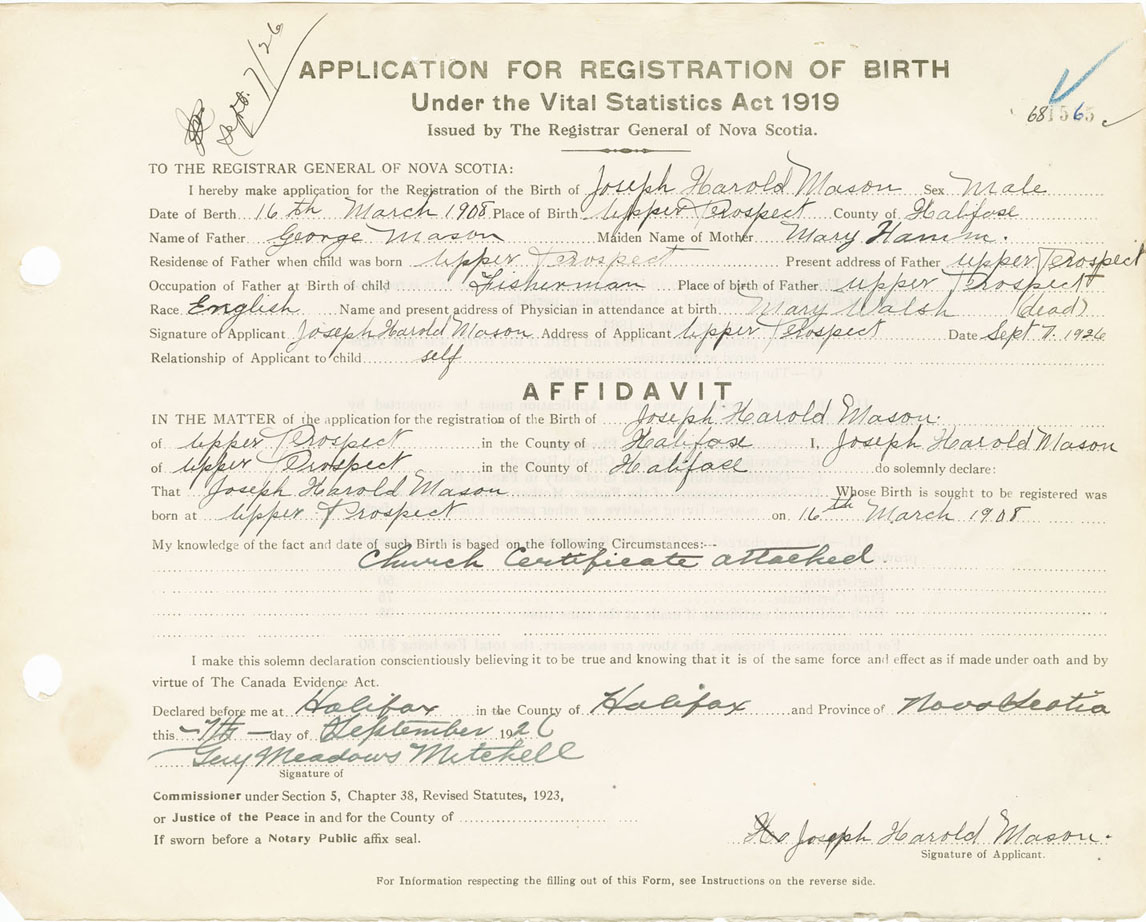 Sept. 7/26
APPLICATION FOR REGISTRATION OF BIRTH
Under the Vital Statistics Act 1919
Issued by The Registrar General of Nova Scotia.
681565
TO THE REGISTRAR GENERAL OF NOVA SCOTIA:
I hereby make application for the Registration of the Birth of Joseph Harold Mason Sex Male
Date of Berth 16th March 1908 Place of Birth Upper Prospect County of Halifax
Name of Father George Mason Maiden Name of Mother Mary Hamm.
Residense of Father when child was born Upper Prospect Present address of Father Upper Prospect
Occupation of Father at Birth of child Fisherman Place of birth of Father Upper Prospect
Race English Name and present address of Physician in attendance at birth Mary Walsh (dead)
Signature of Applicant Joseph Harold Mason Address of Applicant Upper Prospect Date Sept 7. 1926
Relationship of Applicant to child self
AFFIDAVIT
IN THE MATTER of the application for the registration of the Birth of Joseph Harold Mason.
of Upper Prospect in the County of Halifax I, Joseph Harold Mason
of Upper Prospect in the County of Halifax do solemnly declare:
That Joseph Harold Mason Whose Birth is sought to be registered was
born at Upper Prospect on 16th March 1908
My knowledge of the fact and date of such Birth is based on the following Circumstances:--
Church Certificate attached.
I make this solemn declaration conscientiously believing it to be true and knowing that it is of the same force and effect as if made under oath and by
virtue of The Canada Evidence Act.
Declared before me at Halifax in the County of Halifax and Province of Nova Scotia
this 7th day of September 1926
Guy Meadows Mitchell
Signature of
Commissioner under Section 5, Chapter 38, Revised Statutes, 1923,
or Justice of the Peace in and for the County of
If sworn before a Notary Public affix seal.
Joseph Harold Mason.
Signature of Applicant.
For Information respecting the filling out of this Form, see Instructions on the reverse side.